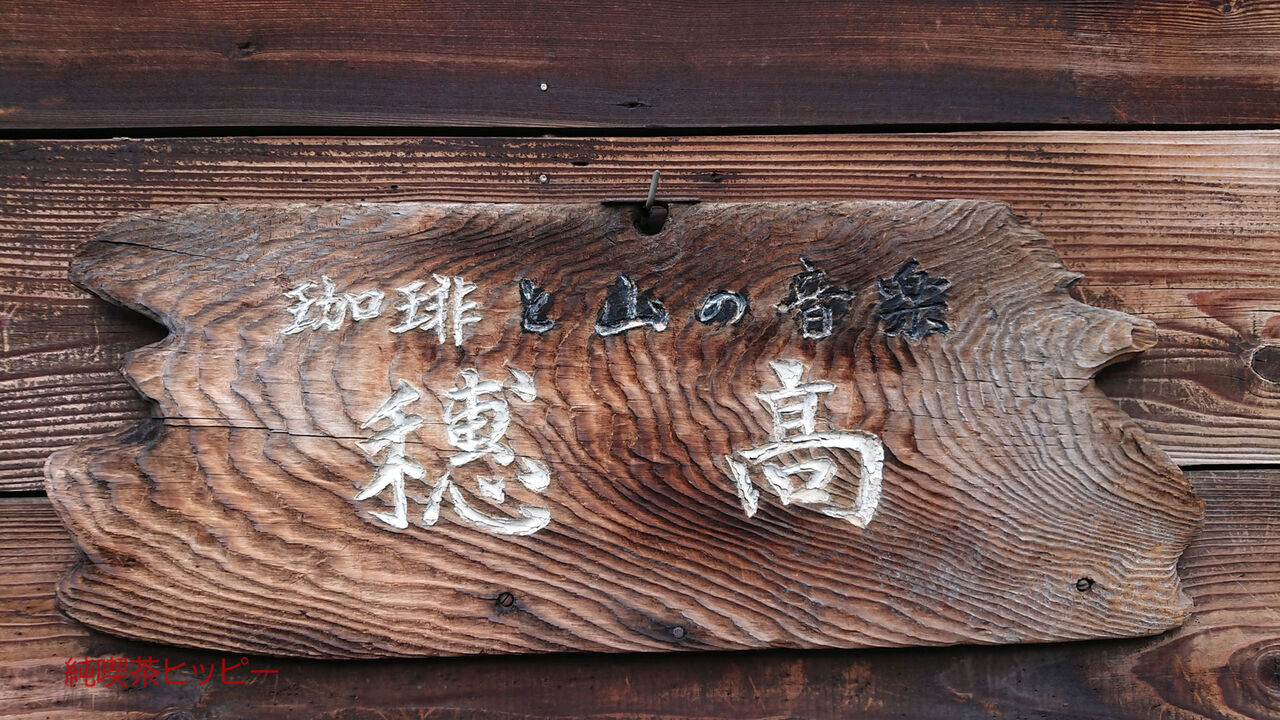 珈琲と山の音楽
穂高
純喫茶ヒッピー